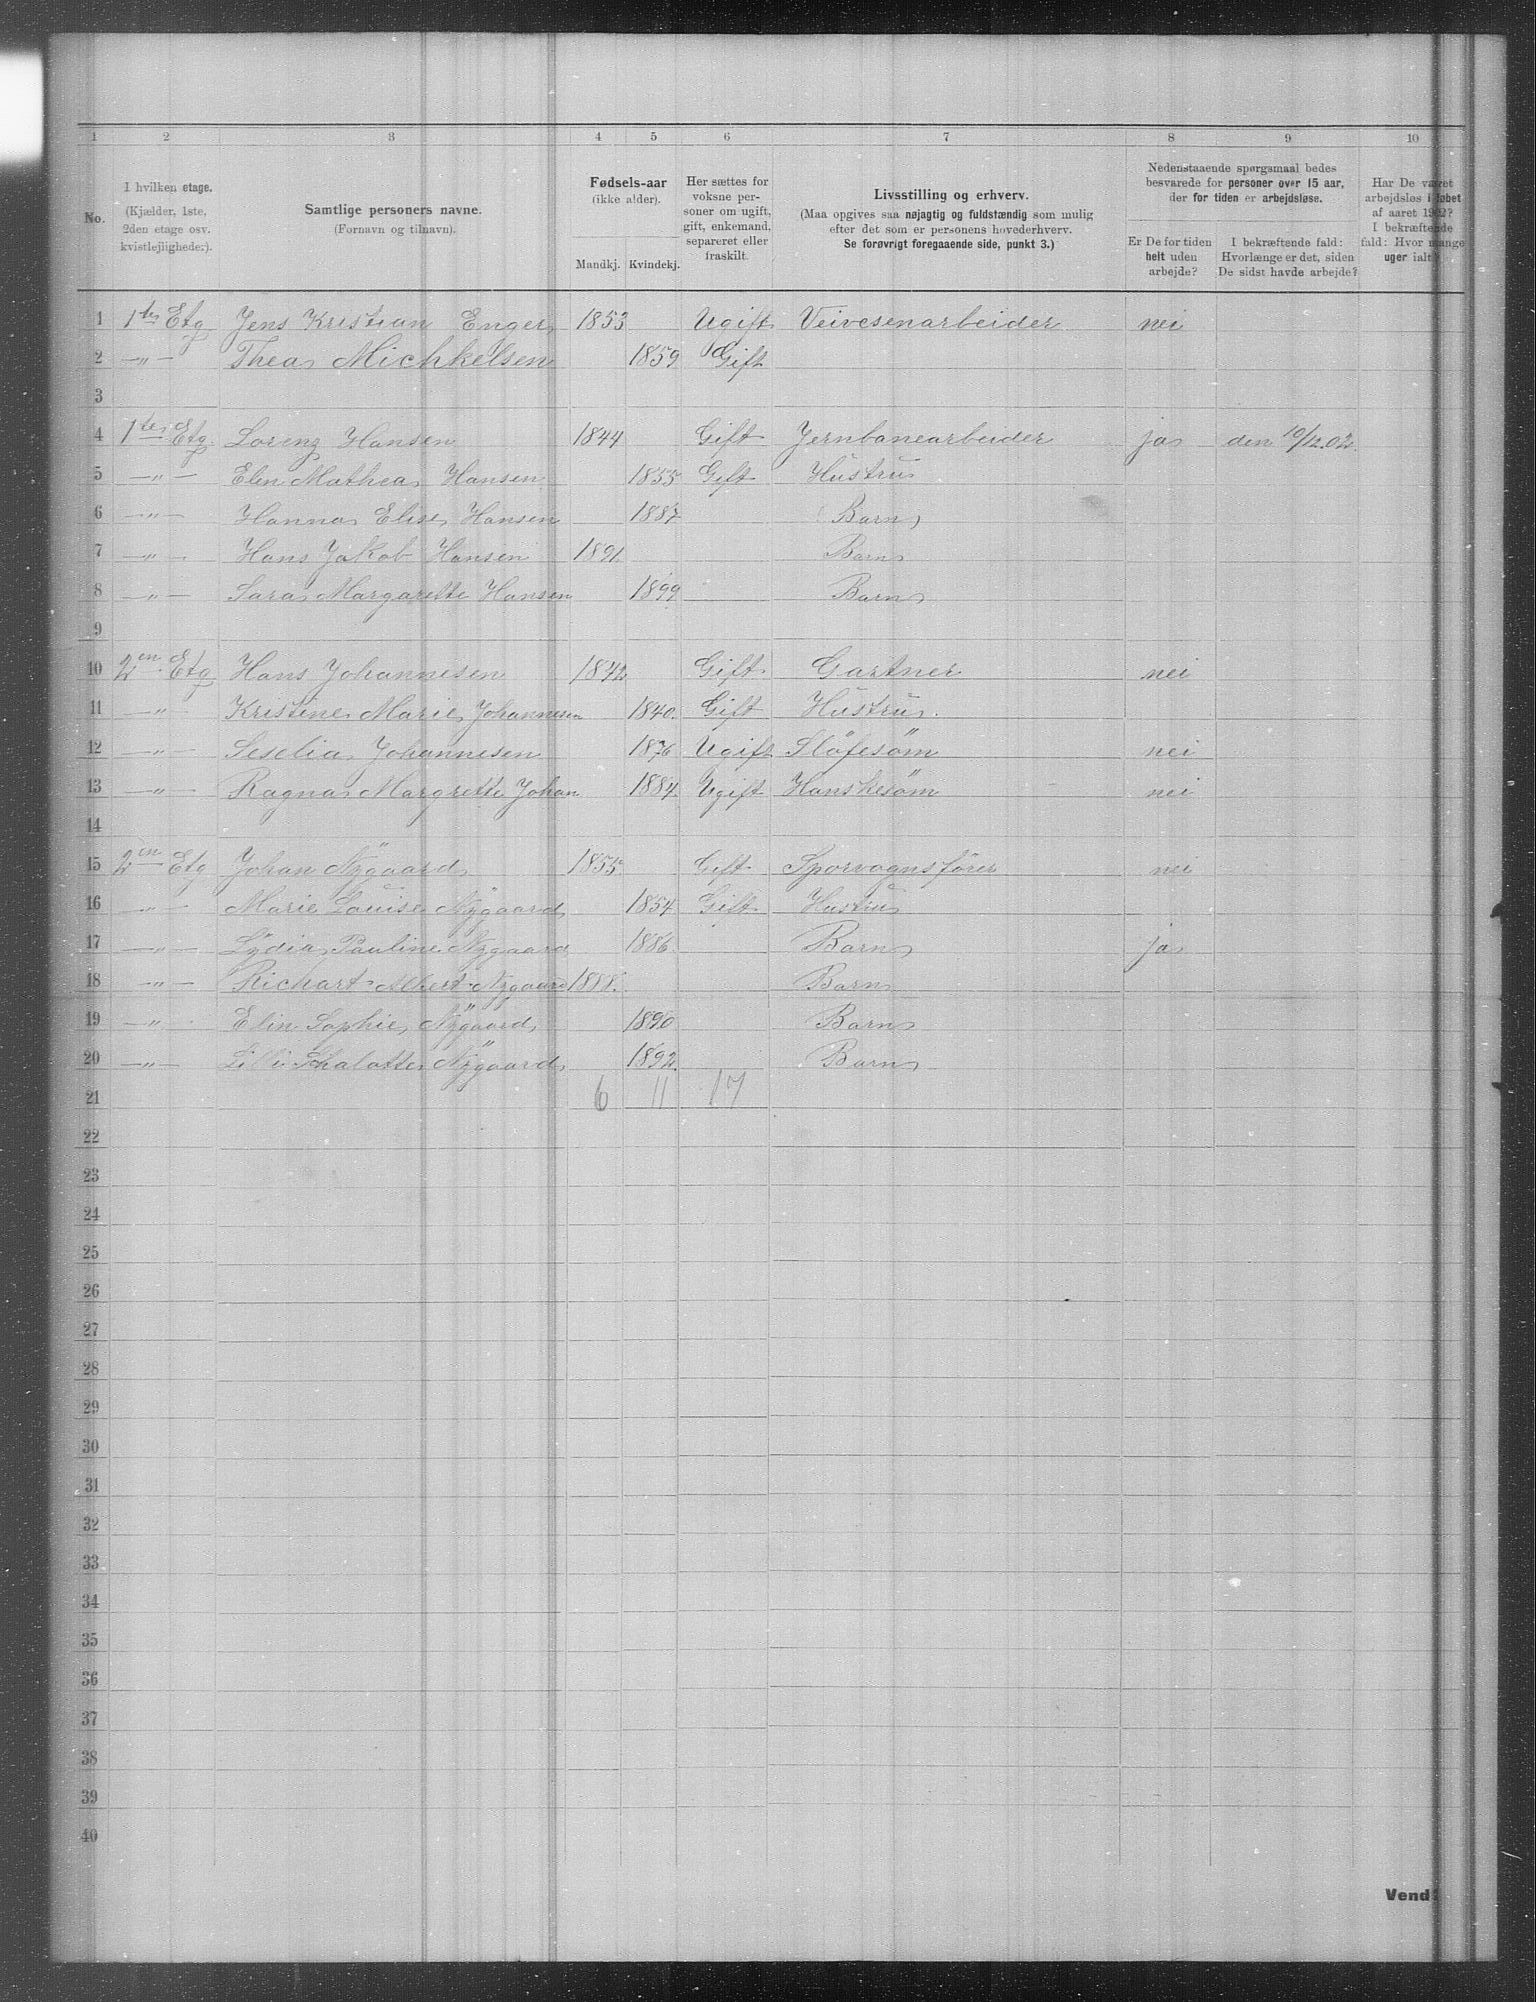 1 2 3 4 5 6 7 8 9 10
No.
I hvilken etage.
(Kjælder, 1ste,
2den etage osv.
kvistlejligheder).
Samtlige personers navne.
(Fornavn og tilnavn).
Fødsels-aar
(ikke alder).
Mandkj. Kvindekj.
Her sættes for
voksne per-
soner om ugift,
gift, enkemand,
separeret eller
fraskilt.
Livsstilling og erhverv.
(Maa opgives saa nøjagtig og fuldstændig som mulig
efter det som er personens hovederhverv.
Se forøvrigt foregaaende side, punkt 3.)
Nedenstaaende spørgsmaal bedes
besvarede for personer over 15 aar,
der for tiden er arbejdsløse.
Er De for tiden
helt uden
arbejde?
I bekræftende fald:
Hvorlænge er det, siden
De sidst havde arbejde?
Har De været
arbejdsløs i løbet
af aaret 1902?
I bekræftende
fald: Hvor mange
uger ialt?
1 1ste Etg Jens Kristian Enger 1853 Ugift Veivesenarbeider nei
2 —„— Thea Michkelsen 1859 Gift
3
4 1ste Etg. Lorenz Hansen 1844 Gift Jernbanearbeider ja den 10/12.02.
5 —„— Elen Mathea Hansen 1855 Gift Hustru
6 —„— Hanna Elise Hansen 1887 Barn
7 —„— Hans Jakob Hansen 1891. Barn
8 —„— Sara Margarette Hansen 1899 Barn
9
10 2en Etg Hans Johannesen 1842 Gift Gartner nei
11 —„— Kristine Marie Johannesen 1840. Gift Hustru.
12 —„— Seselia Johannesen 1876 Ugift Slöfesöm nei
13 —„— Ragna Margrette Johan 1884. Ugift Hanskesöm nei
14
15 2en Etg Johan Nygaard 1855 Gift Sporvognsfører nei
16 —„— Marie Louise Nygaard 1854 Gift Hustru
17 —„— Lydia Pauline Nygaard 1886. Barn ja
18 —„— Richart Albert Nygaard 1888. Barn
19 —„— Elin Sophie Nygaard 1890 Barn
20 —„— Lilli Schalotte Nygaard 1892. Barn
21 6 11 17
22
23
24
25
26
27
28
29
30
31
32
33
34
35
36
37
38
39
40
Vend!